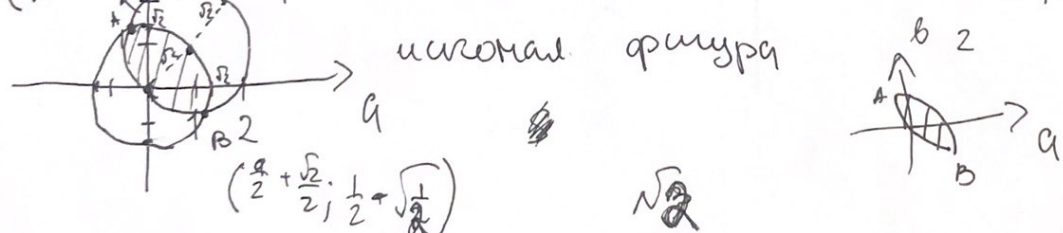 A √2 √2
√2 √2
искомая фигура
в 2
A
a
B 2
a
B
(a/2 + √2/2; 1/2 - √(1/2))
√2